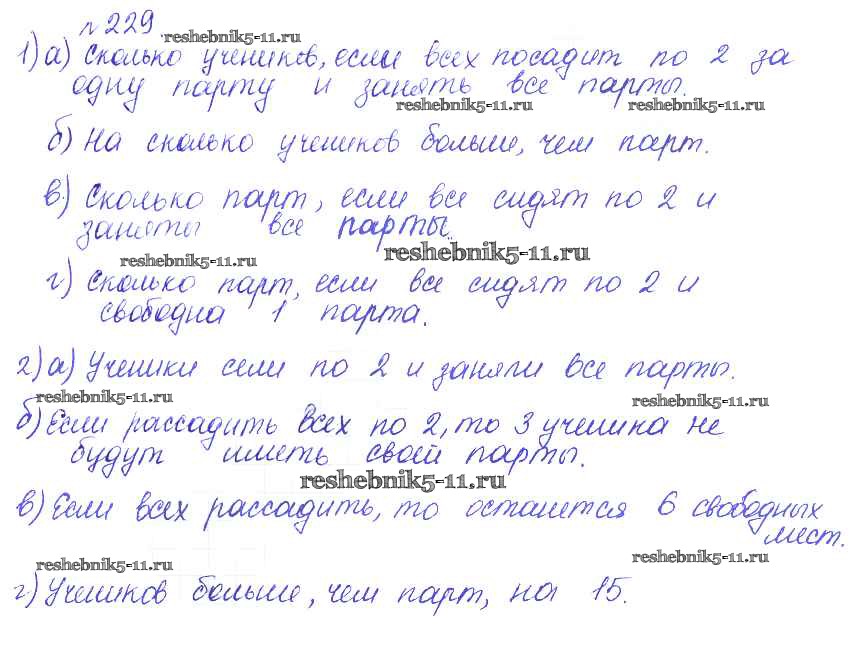 №229.
reshebnik5-11.ru
1) а) Сколько учеников, если всех посадит по 2 за
одну парту и занять все парты.
reshebnik5-11.ru reshebnik5-11.ru
б) На сколько учеников больше, чем парт.
в) Сколько парт, если все сидят по 2 и
заняты все парты.
reshebnik5-11.ru reshebnik5-11.ru
г) Сколько парт, если все сидят по 2 и
свободна 1 парта.
2) а) Ученики сели по 2 и заняли все парты.
reshebnik5-11.ru reshebnik5-11.ru
б) Если рассадить всех по 2, то 3 ученика не
будут иметь своей парты.
reshebnik5-11.ru
в) Если всех рассадить, то останется 6 свободных
мест.
reshebnik5-11.ru reshebnik5-11.ru
г) Учеников больше, чем парт, на 15.